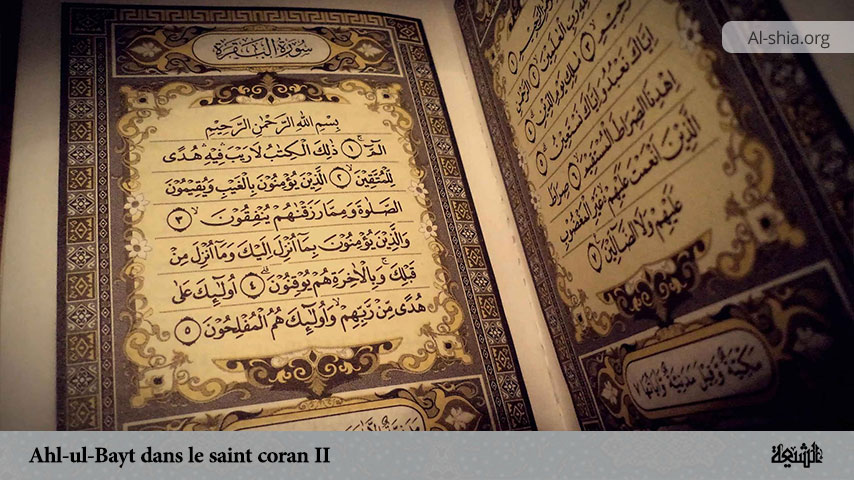 Al-shia.org
سُورَةُ الْبَقَرَةِ
بِسْمِ اللّٰهِ الرَّحْمٰنِ الرَّحِيْمِ
الٓمّٓ ۚ ١ ذٰلِكَ الْكِتٰبُ لَا رَيْبَ ۛ فِيْهِ ۛ هُدًى
لِّلْمُتَّقِيْنَ ۙ ٢ الَّذِيْنَ يُؤْمِنُوْنَ بِالْغَيْبِ وَيُقِيْمُوْنَ
الصَّلٰوةَ وَمِمَّا رَزَقْنٰهُمْ يُنْفِقُوْنَ ۙ ٣
وَالَّذِيْنَ يُؤْمِنُوْنَ بِمَآ اُنْزِلَ اِلَيْكَ وَمَآ اُنْزِلَ مِنْ
قَبْلِكَ ۚ وَبِالْاٰخِرَةِ هُمْ يُوْقِنُوْنَ ۗ ٤ اُولٰٓئِكَ عَلٰى
هُدًى مِّنْ رَّبِّهِمْ ۙ وَاُولٰٓئِكَ هُمُ الْمُفْلِحُوْنَ ٥
اِيَّاكَ نَعْبُدُ وَاِيَّاكَ نَسْتَعِيْنُ
اِهْدِنَا الصِّرَاطَ الْمُسْتَقِيْمَ ۙ صِرَاطَ
الَّذِيْنَ اَنْعَمْتَ عَلَيْهِمْ ۙ غَيْرِ الْمَغْضُوْبِ
عَلَيْهِمْ وَلَا الضَّآلِّيْنَ
Ahl-ul-Bayt dans le saint coran II
الشيعة